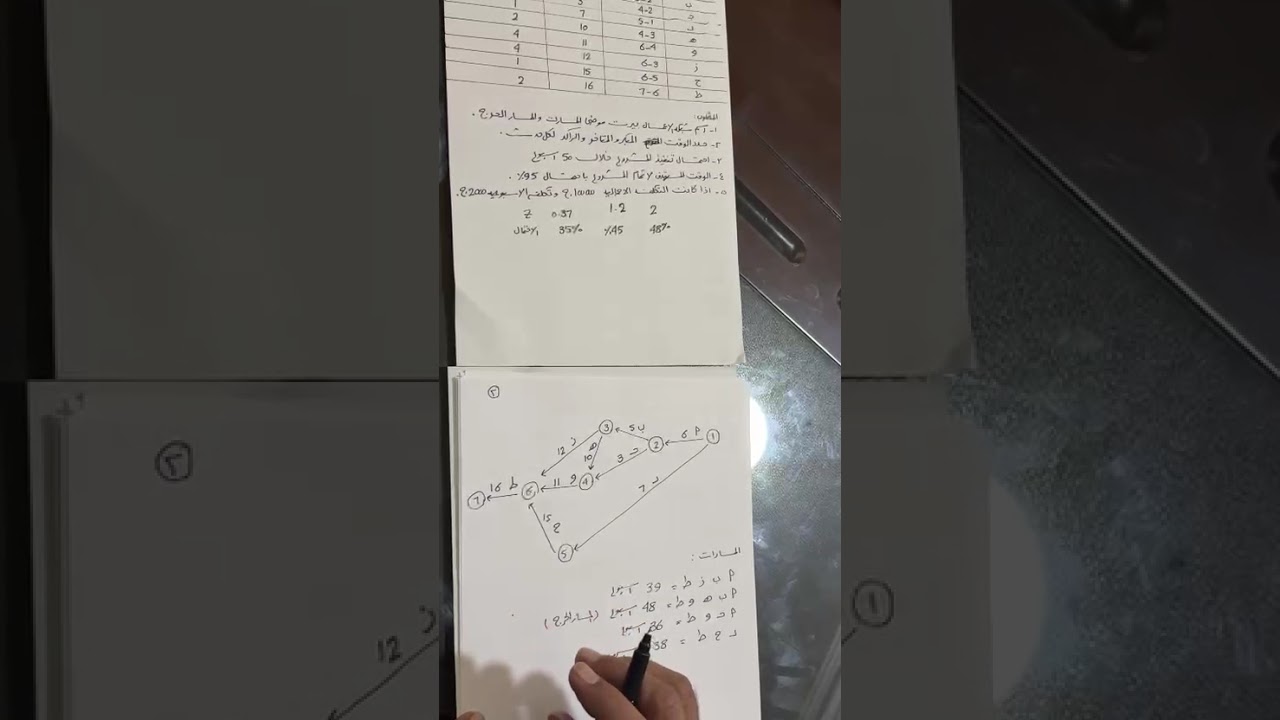 ب 3-2 5 1
ج 4-2 3
د 5-1 7 2
ه 4-3 10 4
و 6-4 11 4
ز 6-3 12 1
ح 6-5 15
ط 7-6 16 2
المطلوب:
1- ارسم شبكة الاعمال بيرت موضحا المسارات والمسار الحرج.
2- حدد الوقت المبكر والمتأخر والراكد لكل حدث.
3- احتمال تنفيذ المشروع خلال 50 اسبوع
4- الوقت المتوقع لاتمام المشروع باحتمال 95%.
5- اذا كانت التكلفة 10000ج وتكلفة الاسبوعيه 2000ج.
Z 0.37 1.2 2
الاحتمال 35% 45% 48%
٢
3
ب 5
2
أ 6
1
ز 12
ه 10
ج 3
4
و 11
6
ط 16
7
د 7
ح 15
5
المسارات:
أ ب ز ط = 39 اسبوع
أ ب ه و ط = 48 اسبوع (المسار الحرج)
أ ج و ط = 36 اسبوع
د ح ط = 38
٢
ز
12
1